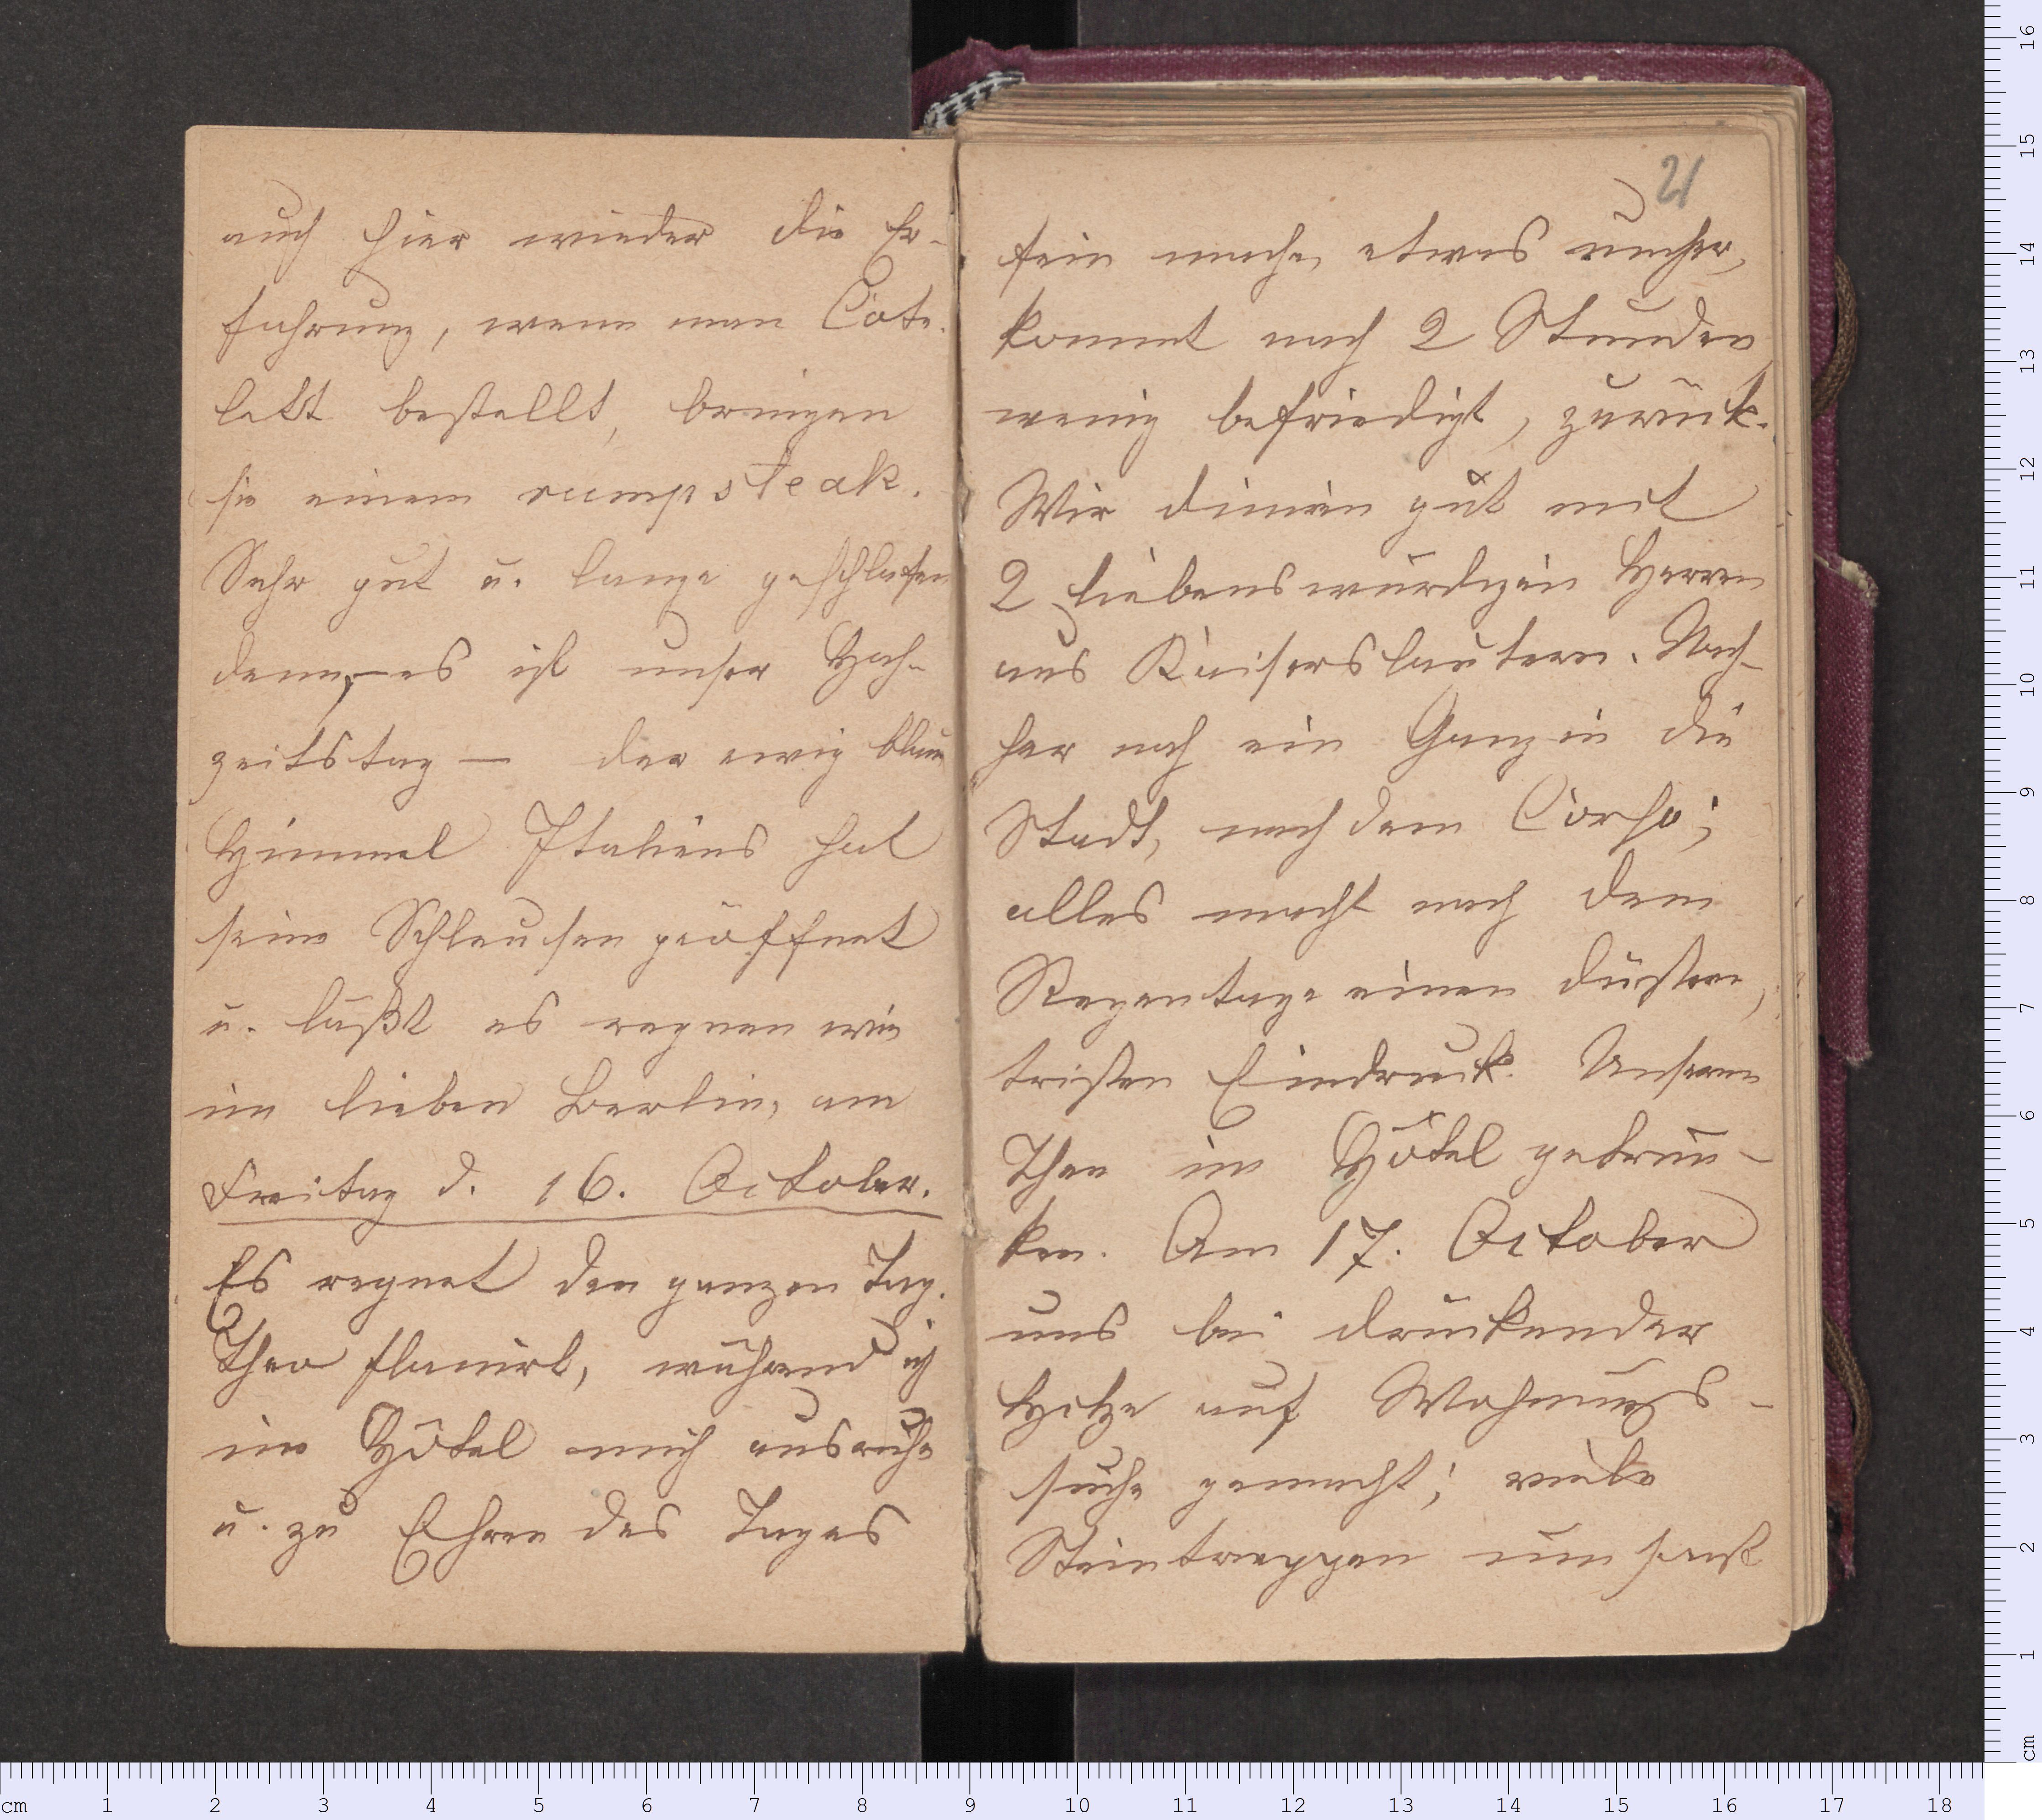 auch hier wieder die Er-
fahrung, wenn man Cote-
lett bestellt, bringen
sie einem rumpsteak.
Sehr gut u. lange geschlafen
denn, – es ist unser Hoch-
zeitstag – der ewig blaue
Himmel Italiens hat
seine Schleusen geöffnet
u. läßt es regnen wie
im lieben Berlin, am
Freitag d. 16. October.
Es regnet den ganzen Tag.
Theo flanirt, während ich
im Hôtel mich ausruhe
u. zu Ehren des Tages
21
fein mache, etwas umher,
kommt nach 2 Stunden
wenig befriedigt, zurück.
Wir diniren gut mit
2 liebenswürdigen Herren
aus Kaiserslautern. Nach-
her noch ein Gang in die
Stadt, nach dem Corso;
alles macht nach dem
Regentage einen düstern,
tristen Eindruck. Unseren
Thee im Hôtel getrun-
ken. Am 17. October
uns bei drückender
Hitze auf Wohnungs-
suche gemacht; viele
Steintreppen umsonst